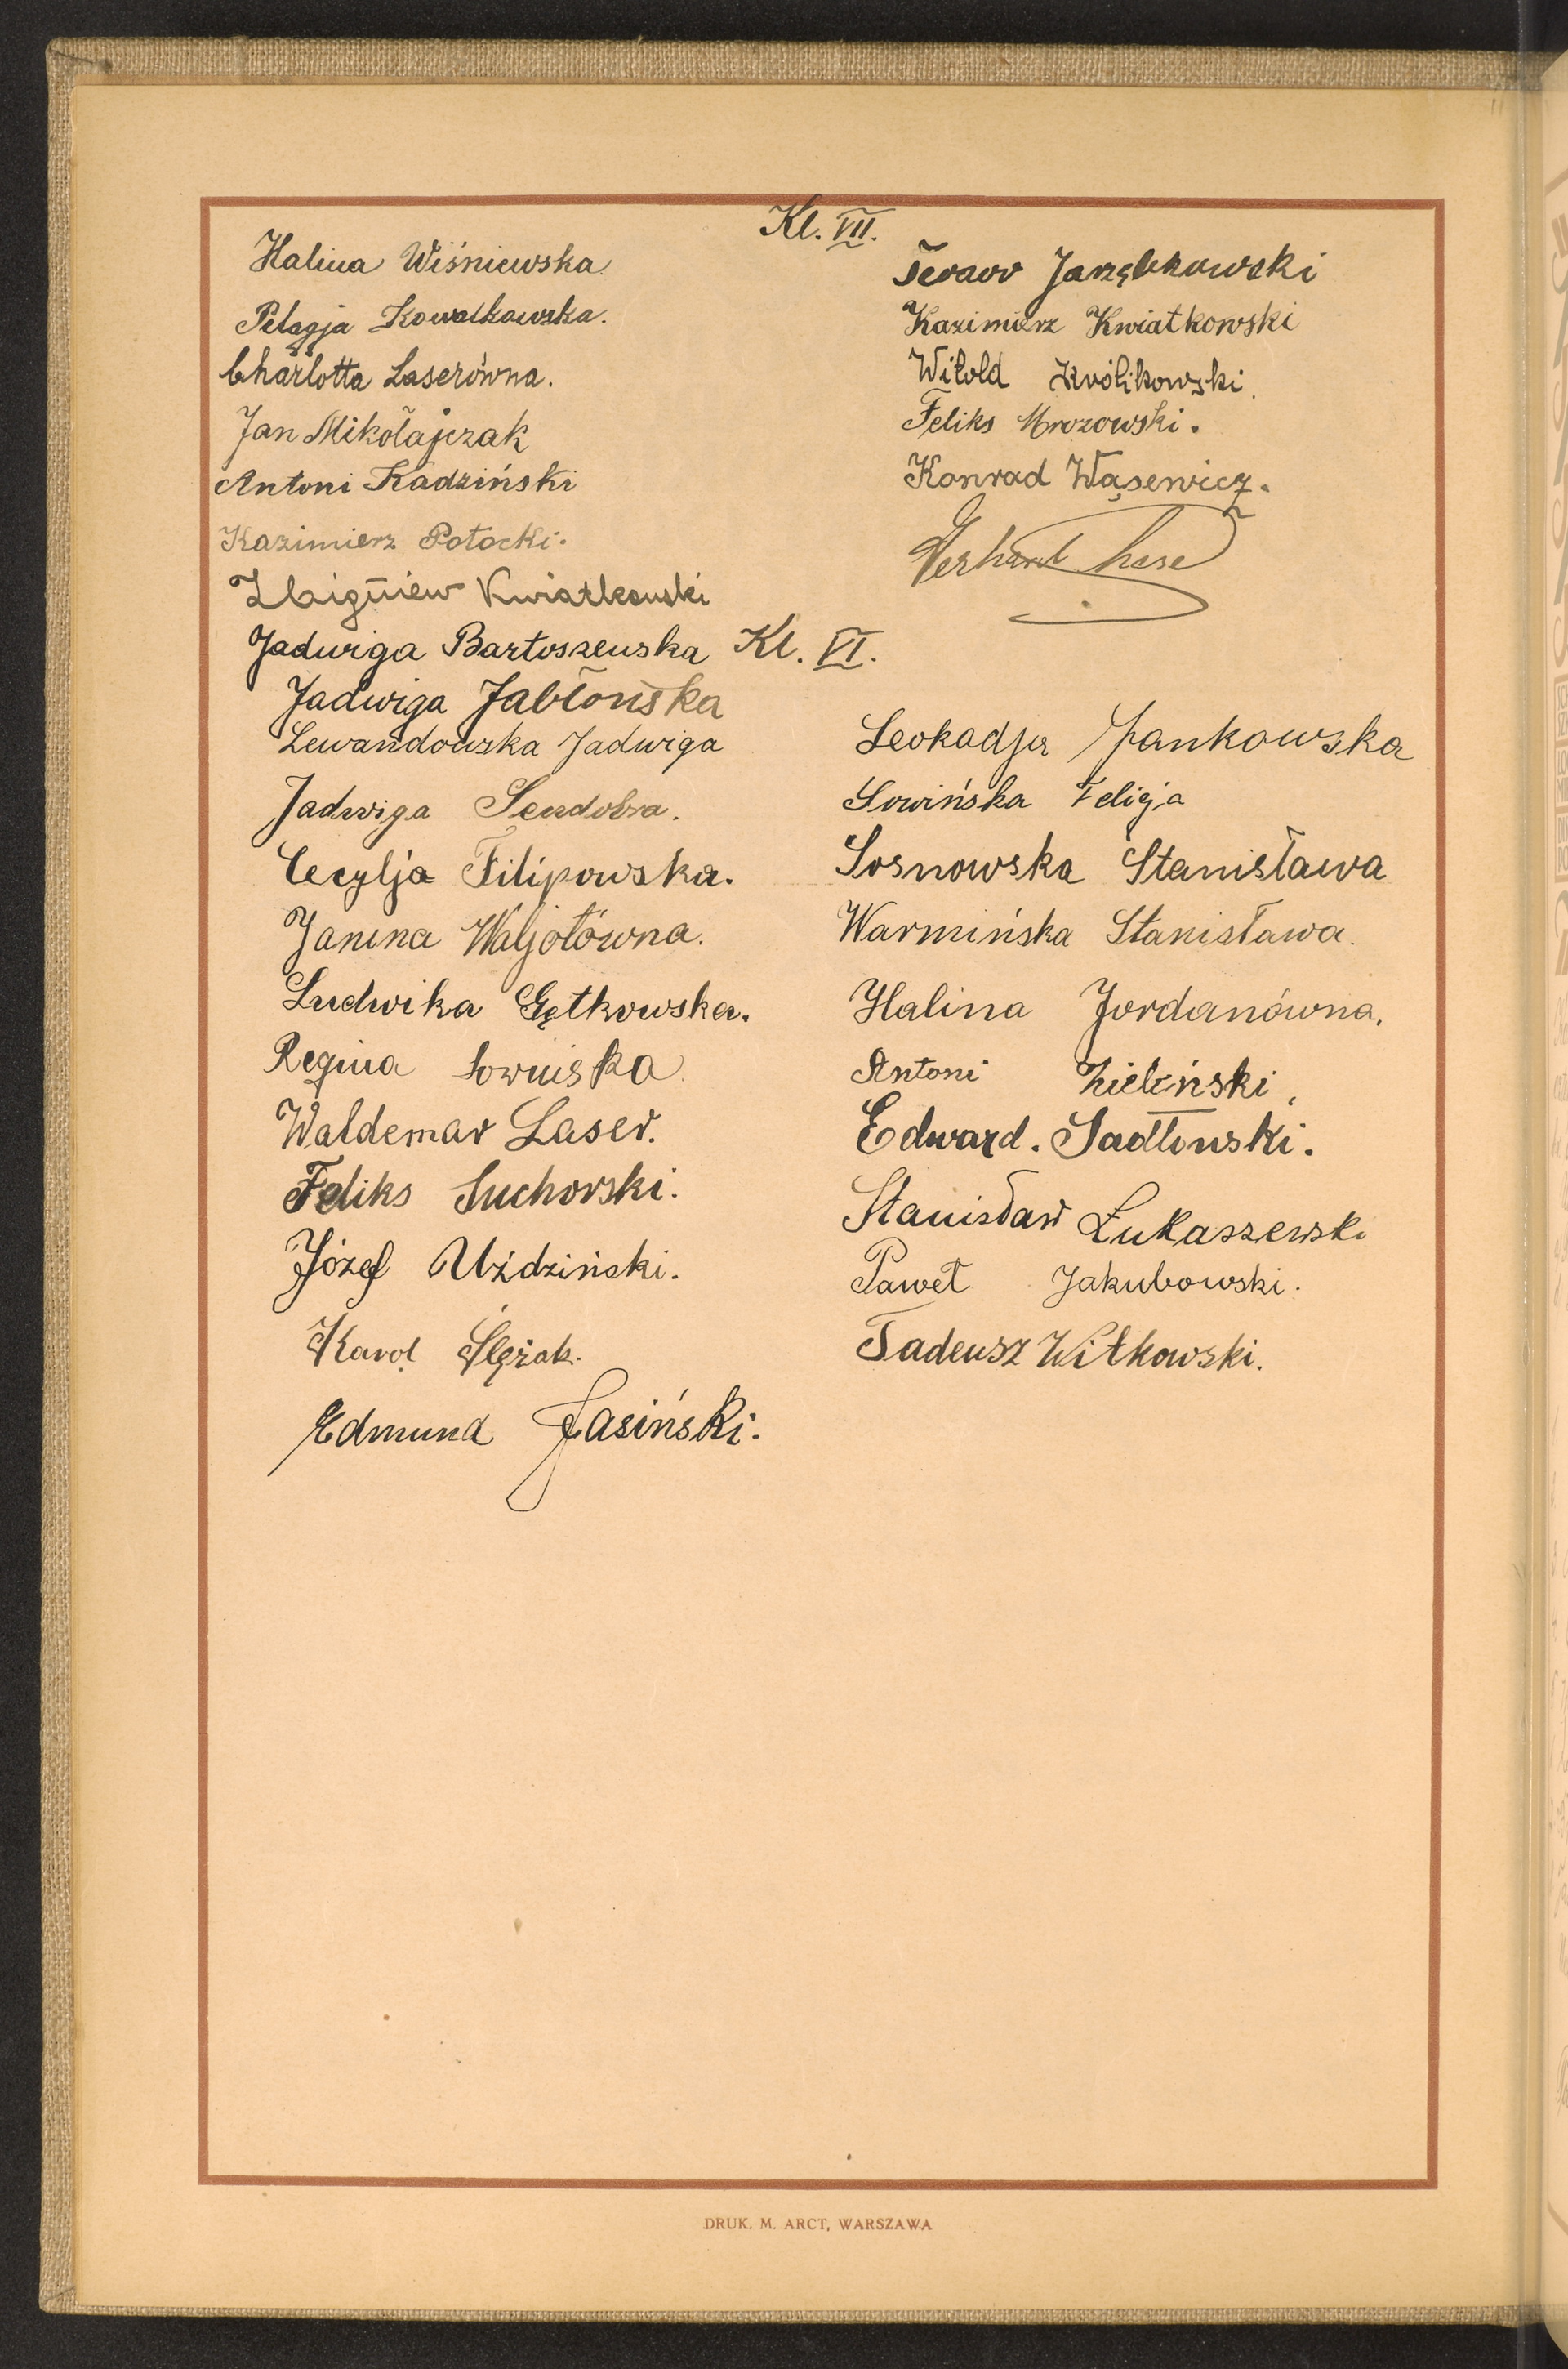 Kl. VII.
Halina Wiśniewska
Pelagja Kowalkowska.
Charlotta Laserówna.
Jan Mikołajczak
Antoni Kadziński
Kazimierz Potocki.
Zbigniew Kwiatkowski
Jarzębkowski
Kazimierz Kwiatkowski
Witold Królikowski.
Feliks Mrozowski.
Konrad Wąsewicz.
Gerhard
Kl. VI.
Jadwiga Bartoszewska
Jadwiga Jabłońska
Lewandowska Jadwiga
Jadwiga Sendobra.
Cecylja Filipowska.
Janina Waljołówna.
Ludwika Gętkowska.
Regina Sowińska
Waldemar Laser.
Feliks Suchorski.
Józef Uździński.
Karol Ślęzak.
Edmund Jasiński.
Leokadja Jankowska
Sowińska Felicja
Sosnowska Stanisława
Warmińska Stanisława.
Halina Jordanówna.
Antoni Zieliński,
Edward. Sadłowski.
Stanisław Łukaszewski
Paweł Jakubowski.
Tadeusz Witkowski.
DRUK. M. ARCT, WARSZAWA